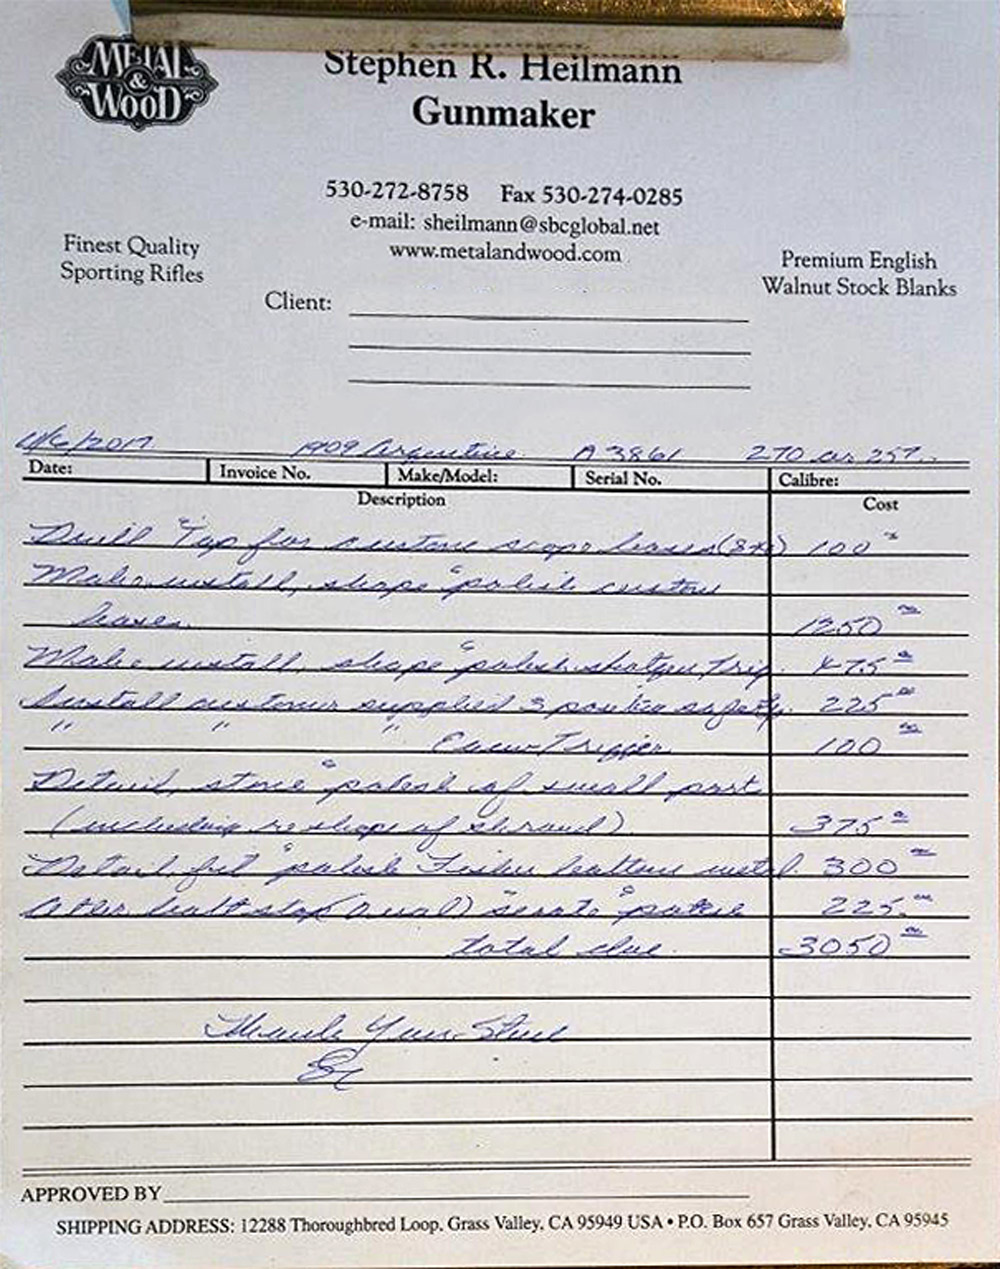 METAL
&
WOOD
Stephen R. Heilmann
Gunmaker
530-272-8758 Fax 530-274-0285
e-mail: sheilmann@sbcglobal.net
www.metalandwood.com
Finest Quality
Sporting Rifles
Premium English
Walnut Stock Blanks
Client:
/2017 1909 Argentine A3861 270 or 257
Date: Invoice No. Make/Model: Serial No. Calibre:
Description Cost
Drill & Tap for custom scope bases 100
Make, install, shape & polish custom
bases 1250
Make, install, shape & polish shotgun trig 475
Install customer supplied 3 position safety 225
" " " Trigger 100
Detail, stone & polish of small part
(including reshape of shroud) 375
Detail, fit & polish Fisher bottom metal 300
Alter bolt stop (oval) serrate & polish 225
total due 3050
Thank You Steve
APPROVED BY
SHIPPING ADDRESS: 12288 Thoroughbred Loop, Grass Valley, CA 95949 USA • P.O. Box 657 Grass Valley, CA 95945